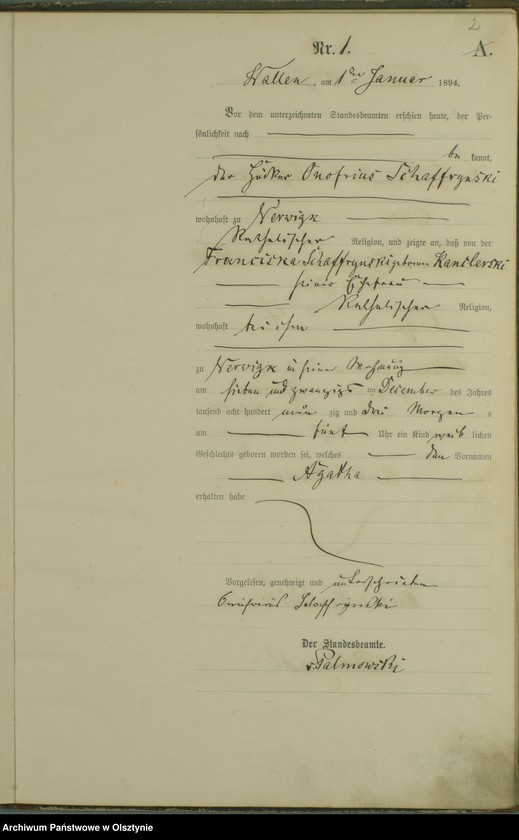 2
Nr. 1. A.
Wallen, am 1ten Januar 1894.
Vor dem unterzeichneten Standesbeamten erschien heute, der Per-
sönlichkeit nach
be kannt,
der Onofrius Schaffrynski
wohnhaft zu Nerwigk
Katholischer Religion, und zeigte an, daß von der
Franciska Schaffrynski geborenen Kanclerski
seiner Ehefrau
Katholischer Religion,
wohnhaft bei ihm
zu Nerwigk in seiner Wohnung
am sieben und zwanzigs ten December des Jahres
tausend acht hundert neun zig und drei Morgen s
um fünf Uhr ein Kind weib lichen
Geschlechts geboren worden sei, welches den Vornamen
Agatha
erhalten habe
Vorgelesen, genehmigt und unterschrieben
Der Standesbeamte.
v. Palmowski
Archiwum Państwowe w Olsztynie